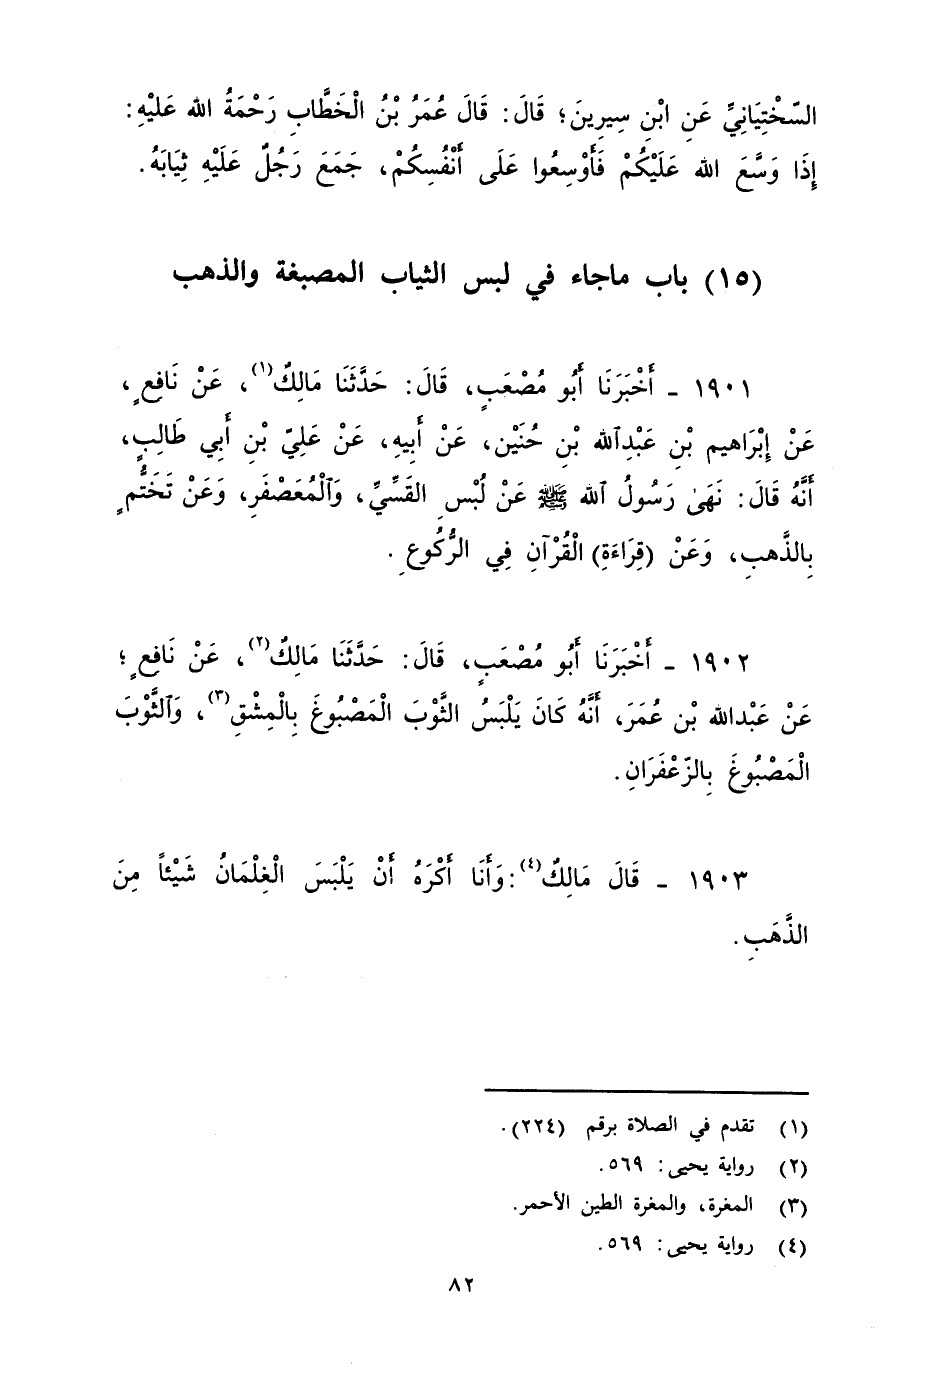 السّخْتِيَانِيِّ عَنِ ابْنِ سِيرِينَ؛ قَالَ: قَالَ عُمَرُ بْنُ الْخَطَّابِ رَحْمَةُ الله عَلَيْهِ:
إِذَا وَسَّعَ الله عَلَيْكُمْ فَأَوْسِعُوا عَلَى أَنْفُسِكُمْ، جَمَعَ رَجُلٌ عَلَيْهِ ثِيَابَهُ.
(١٥) باب ماجاء في لبس الثياب المصبغة والذهب
١٩٠١ ـ أَخْبَرَنَا أَبُو مُصْعَبٍ، قَالَ: حَدَّثَنَا مَالِكٌ(١)، عَنْ نَافِعٍ،
عَنْ إِبْرَاهيم بْنِ عَبْدِٱلله بْنِ حُنَيْن، عَنْ أَبِيهِ، عَنْ عَلِيّ بْنِ أَبي طَالِبٍ،
أَنَّهُ قَالَ: نَهَىٰ رَسُولُ ٱلله ﷺ عَنْ لُبْسِ القَسِّيِّ، وَٱلْمُعَصْفَرِ، وَعَنْ تَخَتُّمٍ
بِالذَّهبِ، وَعَنْ (قِرَاءَةِ) الْقُرْآنِ فِي الرُّكُوعِ.
١٩٠٢ ـ أَخْبَرَنَا أَبُو مُصْعَبٍ، قَالَ: حَدَّثَنَا مَالِكٌ(٢)، عَنْ نَافِعٍ؛
عَنْ عَبْدالله بْنِ عُمَرَ، أَنَّهُ كَانَ يَلْبَسُ الثَّوْبَ الْمَصْبُوغَ بِالْمِشْقِ(٣)، وَٱلثَّوْبَ
الْمَصْبُوغَ بِالزّعْفَرَانِ.
١٩٠٣ ـ قَالَ مَالِكٌ(٤): وَأَنَا أَكْرَهُ أَنْ يَلْبَسَ الْغِلْمَانُ شَيْئاً مِنَ
الذَّهَبِ.
(١) تقدم في الصلاة برقم (٢٢٤).
(٢) رواية يحيى: ٥٦٩.
(٣) المغرة، والمغرة الطين الأحمر.
(٤) رواية يحيى: ٥٦٩.
٨٢